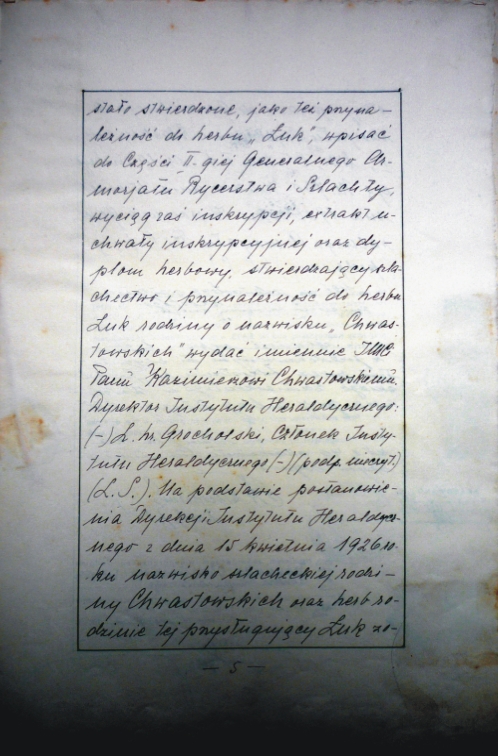 stało stwierdzone, jako też przyna-
leżność do herbu „Łuk", wpisać
do Części II-giej Generalnego Ar-
morjału Rycerstwa i Szlachty,
wyciąg zaś inskrypcji, extrakt u-
chwały inskrypcyjnej oraz dy-
plom herbowy, stwierdzający szla-
chectwo i przynależność do herbu
Łuk rodziny o nazwisku „Chwas-
towskich" wydać imiennie JWP
Panu Kazimierzowi Chwastowskiemu.
Dyrektor Instytutu Heraldycznego:
(-) L. hr. Grocholski, Członek Insty-
tutu Heraldycznego (-) (podp. nieczyt.)
(L. S.). Na podstawie postanowie-
nia Dyrekcji Instytutu Heraldycz-
nego z dnia 15 kwietnia 1926 ro-
ku nazwisko szlacheckiej rodzi-
ny Chwastowskich oraz herb ro-
dzinie tej przysługujący Łuk zo-
— 5 —